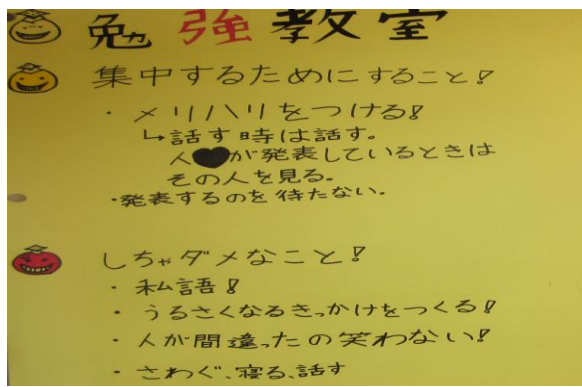 勉強教室
集中するためにすること!
・メリハリをつける!
↳話す時は話す。
人♥が発表しているときは
その人を見る。
・発表するのを待たない。
しちゃダメなこと!
・私語!
・うるさくなるきっかけをつくる!
・人が間違ったの笑わない!
・さわぐ、寝る、話す